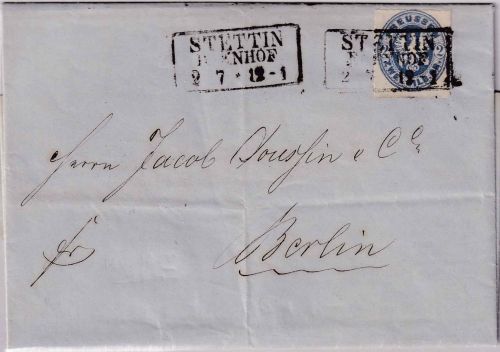 STETTIN
BAHNHOF
2 7 * 12-1
STETTIN
BAHNHOF
2 7 * 12-1
PREUSSEN
Herrn Jacob Doussin & Co
fr
Berlin